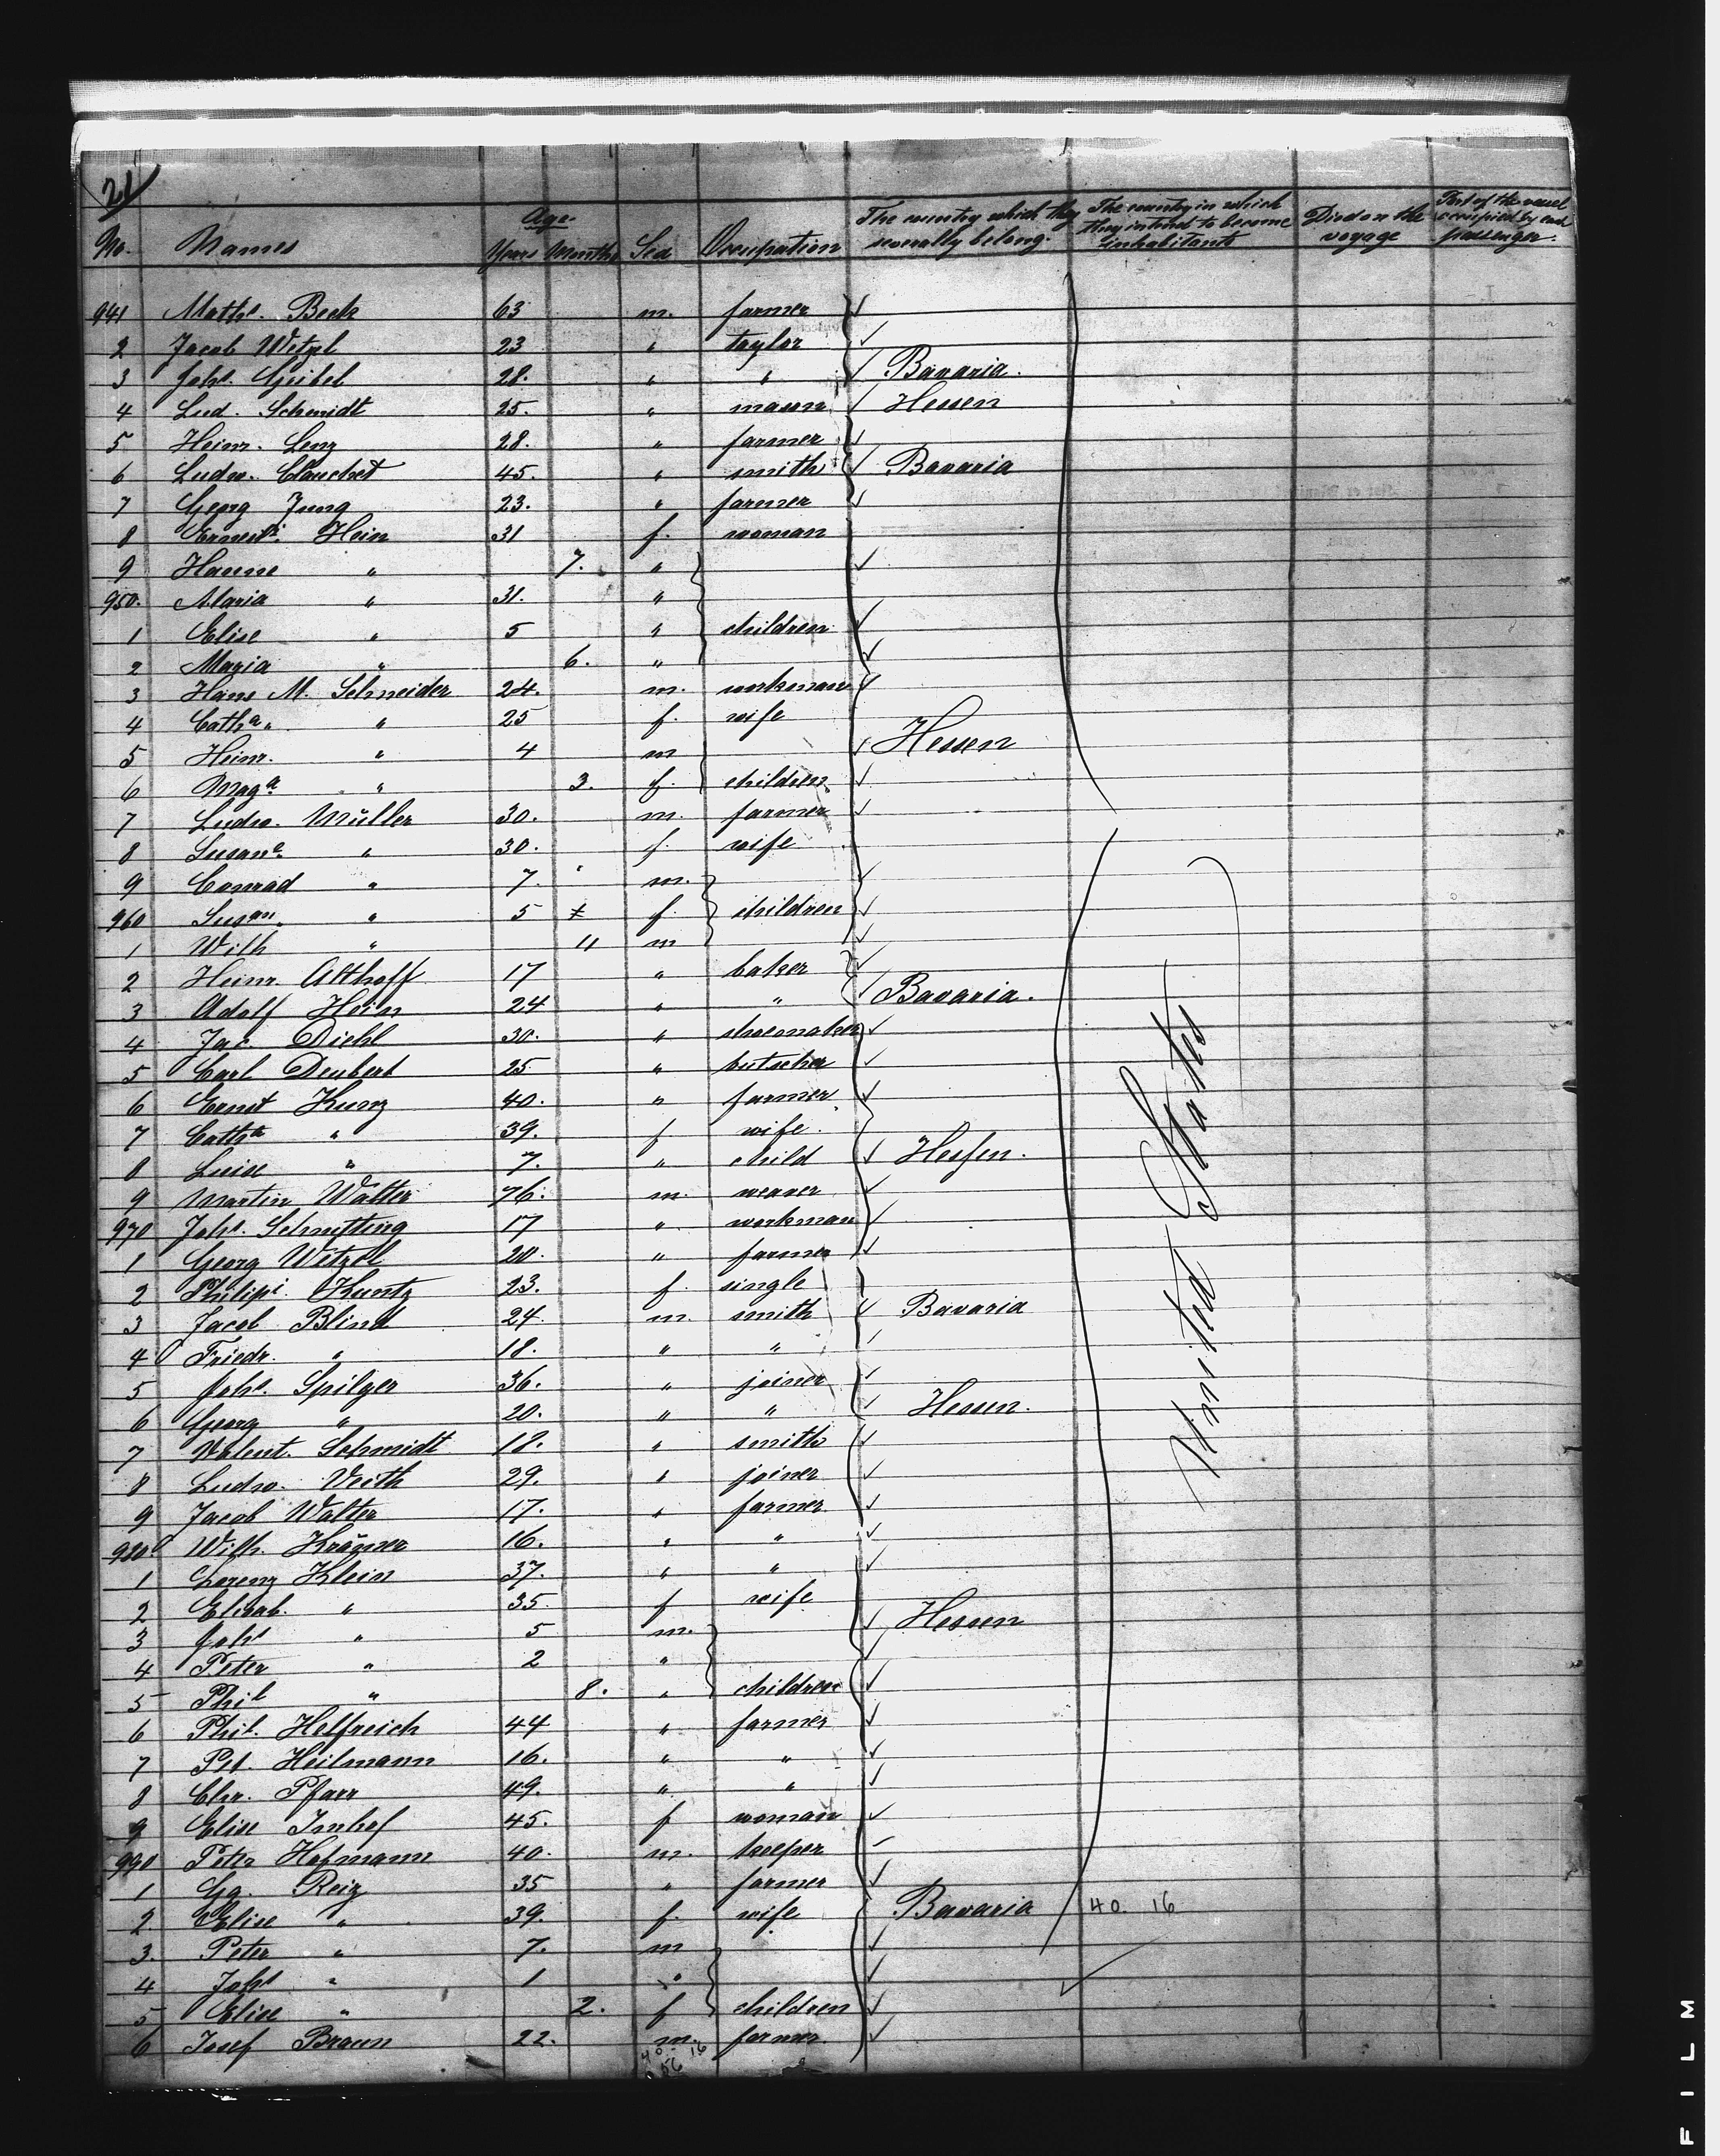 21
No. Names Age. Years Months Sex Occupation The country which they severally belong. The country in which they intend to become inhabitants Died on the voyage Part of the vessel occupied by each passenger.
941 Maths. Beck 63 m. farmer
2 Jacob Wetzel 23 " taylor
3 Johs. Geibel 28. " " Bavaria.
4 Lud. Schmidt 25. " mason Hessen
5 Heinr. Lenz 28. " farmer
6 Ludw. Clauchet 45. " smith Bavaria
7 Georg Jung 23. " farmer
8 Ernesti. Hein 31 f. woman
9 Hanne " 7. "
950. Maria " 31. "
1 Elise " 5 " children
2 Maria " 6. "
3 Hans M. Schneider 24. m. workman
4 Catha. " 25 f. wife
5 Heinr. " 4 m Hessen
6 Maga. " 3. f. children
7 Ludw. Müller 30. m. farmer
8 Susana. " 30. f. wife
9 Conrad " 7. m.
960 Susan. " 5 f. children
1 Wilh " 11 m
2 Heinr. Althoff 17 " baker
3 Adolf Hein 24 " " Bavaria.
4 Jac. Diehl 30. " shoemaker
5 Carl Deubert 25 " butscher
6 Ernst Kunz 40. " farmer
7 Catha " 39. f wife
8 Luise " 7. " child Hessen.
9 Martin Walter 76. m. weaver
970 Johs. 17 " workman
1 Georg Wetzel 20. " farmer
2 Philipi. Kuntz 23. f. single
3 Jacob Blind 24 m. smith Bavaria
4 Friedr. " 18. " "
5 Johs. Spilger 36. " joiner
6 Georg " 20. " " Hessen.
7 Valent. Schmidt 18. " smith
8 Ludw. Veith 29. " joiner
9 Jacob Walter 17. " farmer
980 Wilh. Krämer 16. " "
1 Lorenz Klein 37. " "
2 Elisab. " 35. f wife
3 Johs " 5 m. Hessen
4 Peter " 2 "
5 Phil " 8. " children
6 Phil. Helfreich 44 " farmer
7 Pet. Heilmann 16. " "
8 Chr. Pfarr 49. " "
9 Elise Imhof 45. f woman
990 Peter Hofmann 40. m. keeper
1 Gg. Reiz 35 " farmer
2 Elise " 39. f. wife Bavaria 40. 16
3. Peter " 7. m
4 Johs " 1 "
5 Elise " 2. f children
6 Josef Braun 22. m. farmer.
United States
40 - 16
56
FILM